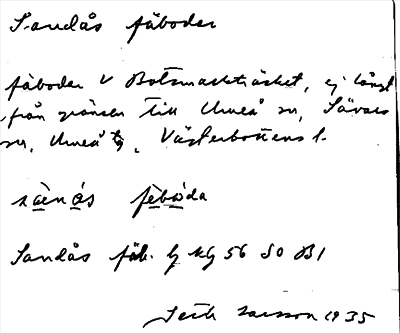 Sandås fäboder
fäboder V Botsmarksträsket, ej långt
från gränsen till Umeå sn, Sävars
sn, Umeå tg, Västerbottens l.
sàenås fèbòda
Sandås fäb. Gg kg 56 SO B1
1935